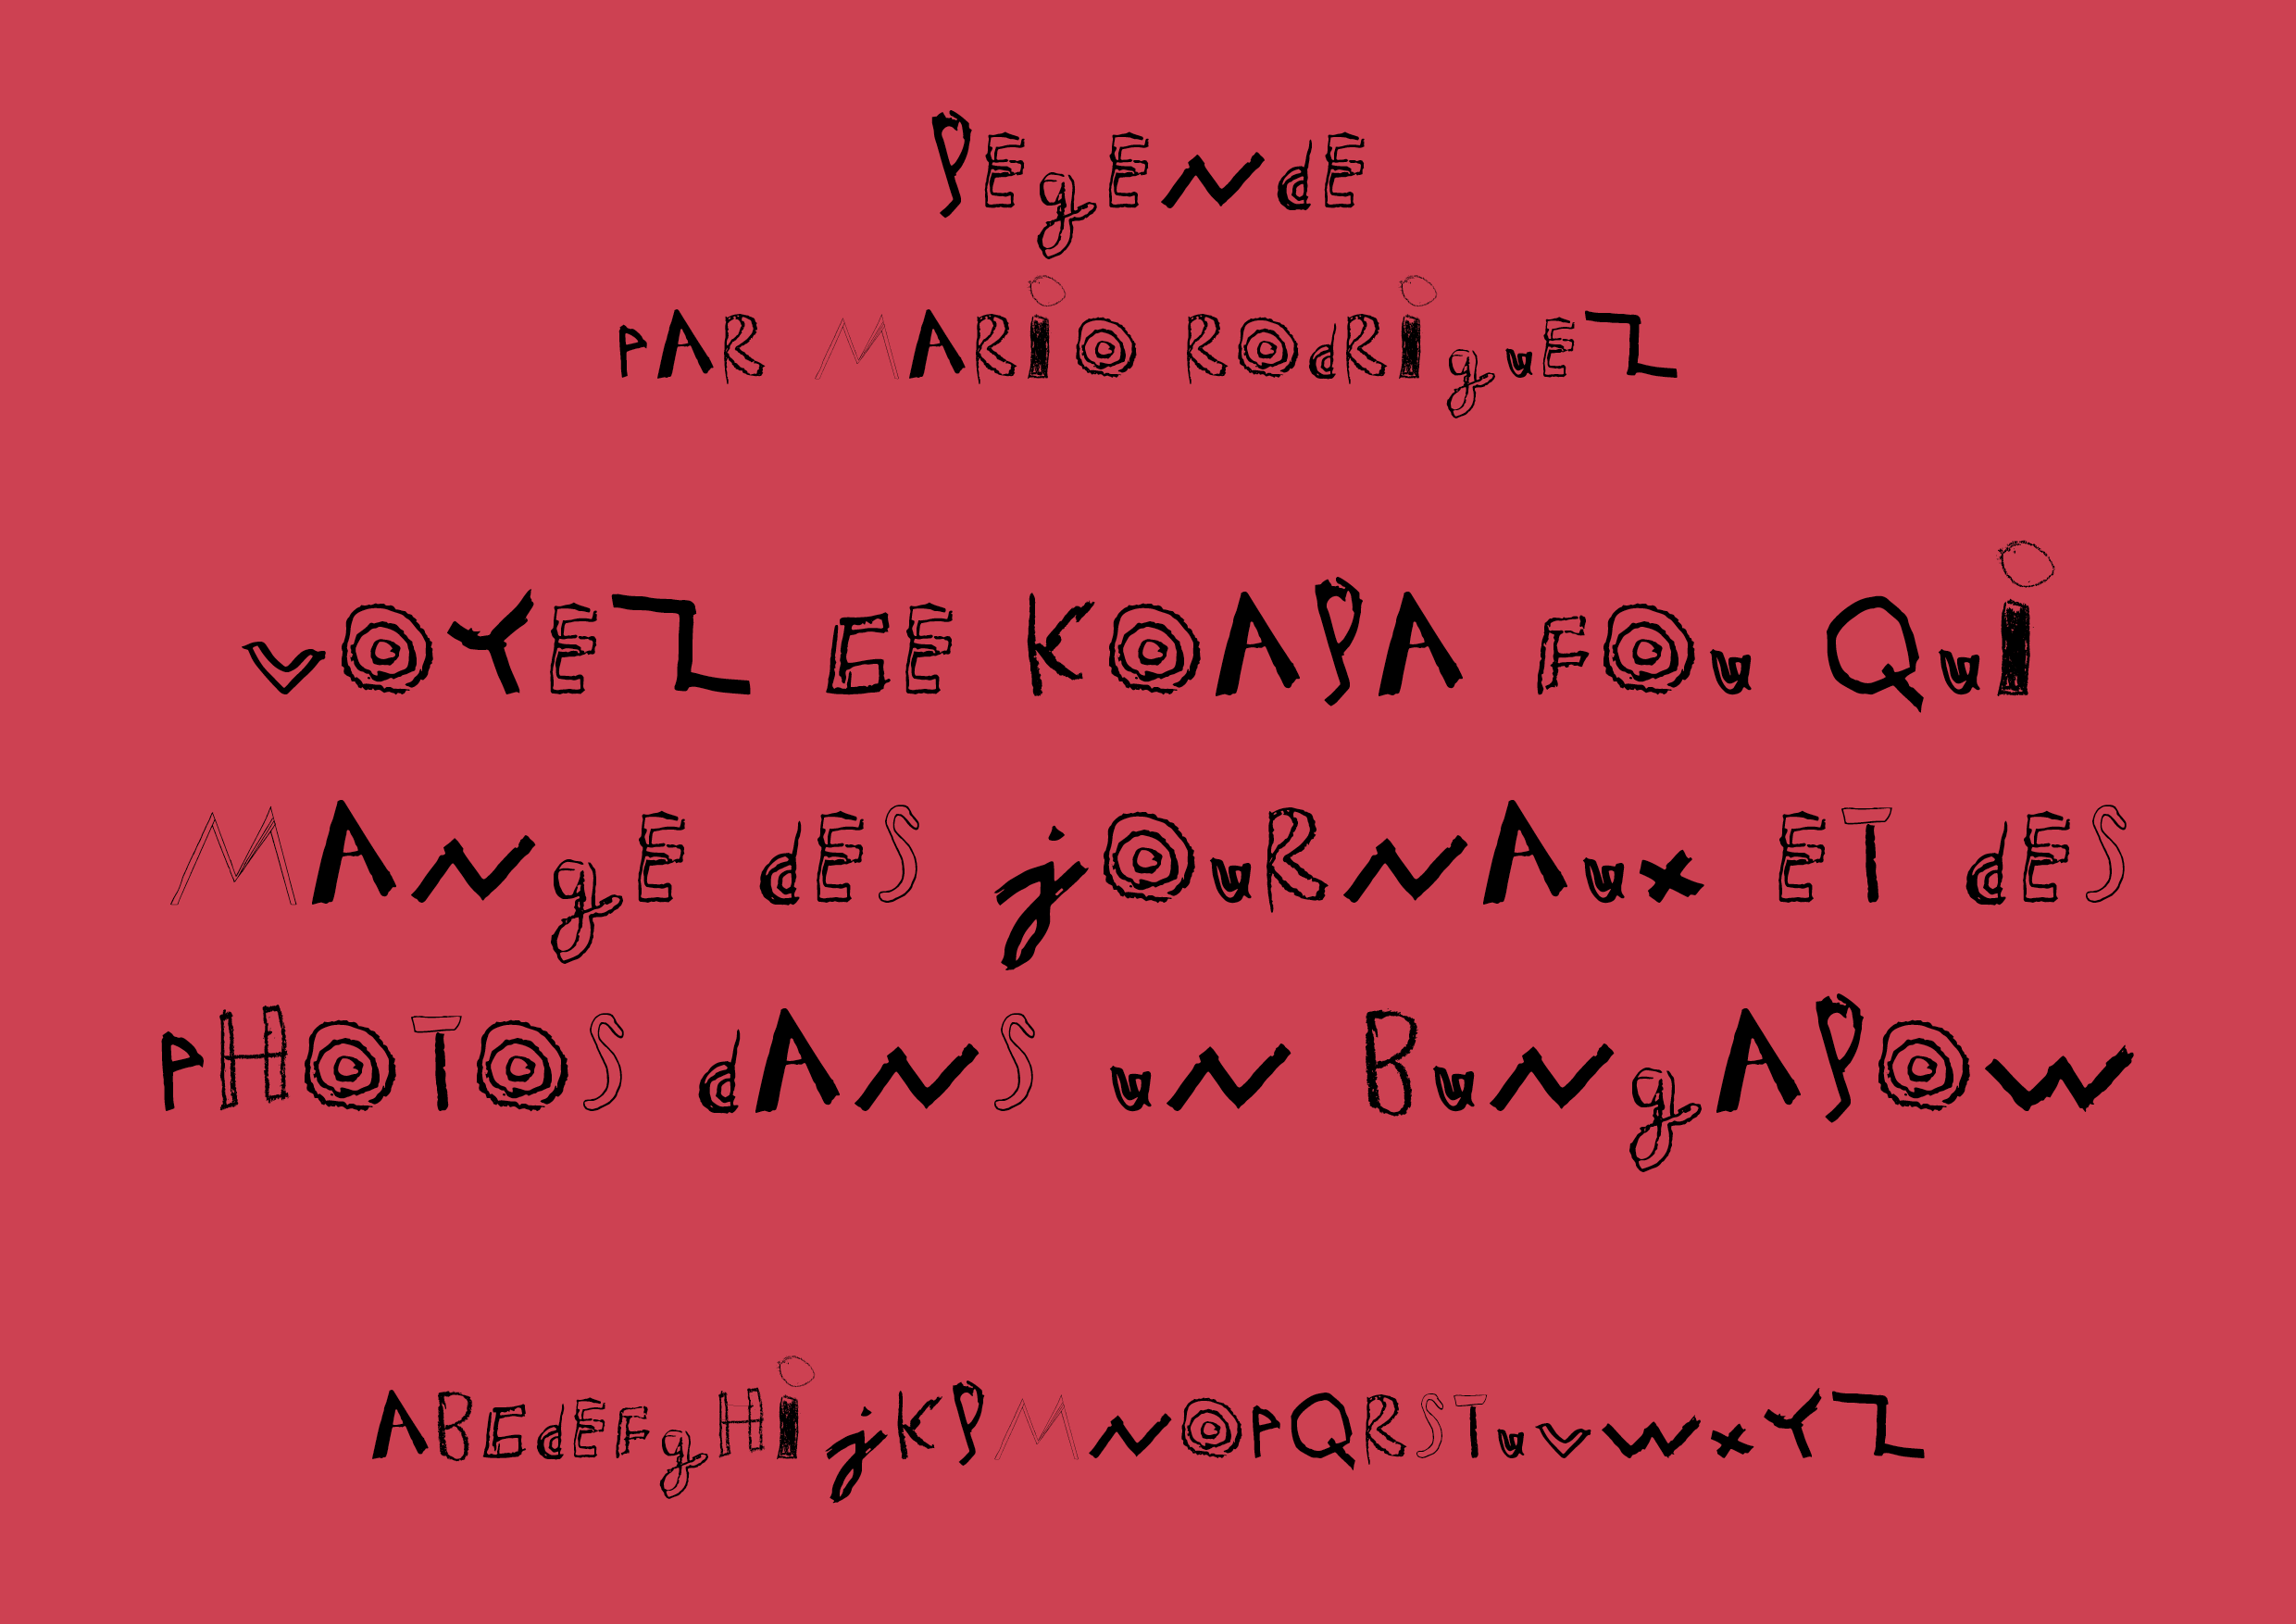 LEgENdE
PAR MARiO ROdRiguEZ
vOYEZ CE KOALA FOu Qui
MANgE dES jOuRNAux ET dES
PHOTOS dANS uN BuNgALOw
ABCdEFgHijKLMNOPQRSTuvwxYZ